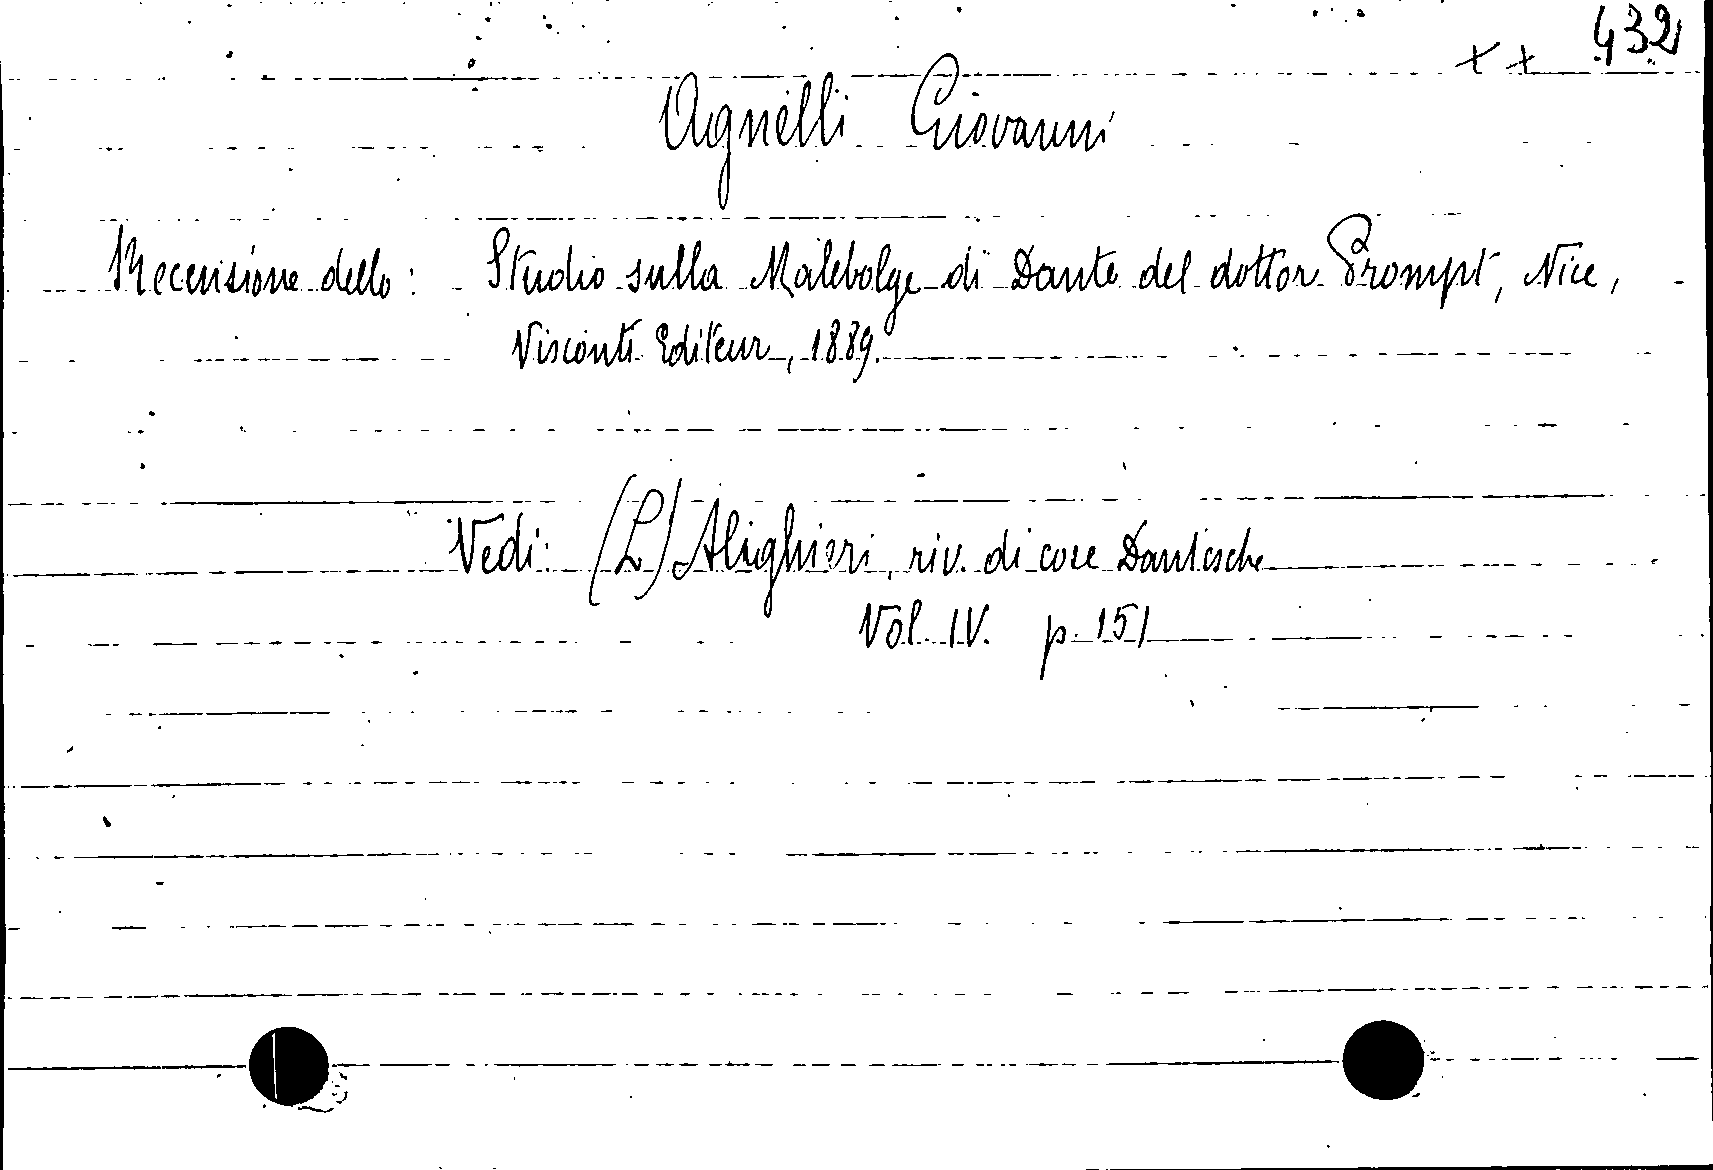 x x 432
Agnelli Giovanni
Recensione dello: Studio sulla Malebolge di Dante del dottor Prompt, Nice,
Visconti Editeur, 1889.
Vedi: (L')Alighieri, riv. di cose Dantesche
Vol. IV. p. 151